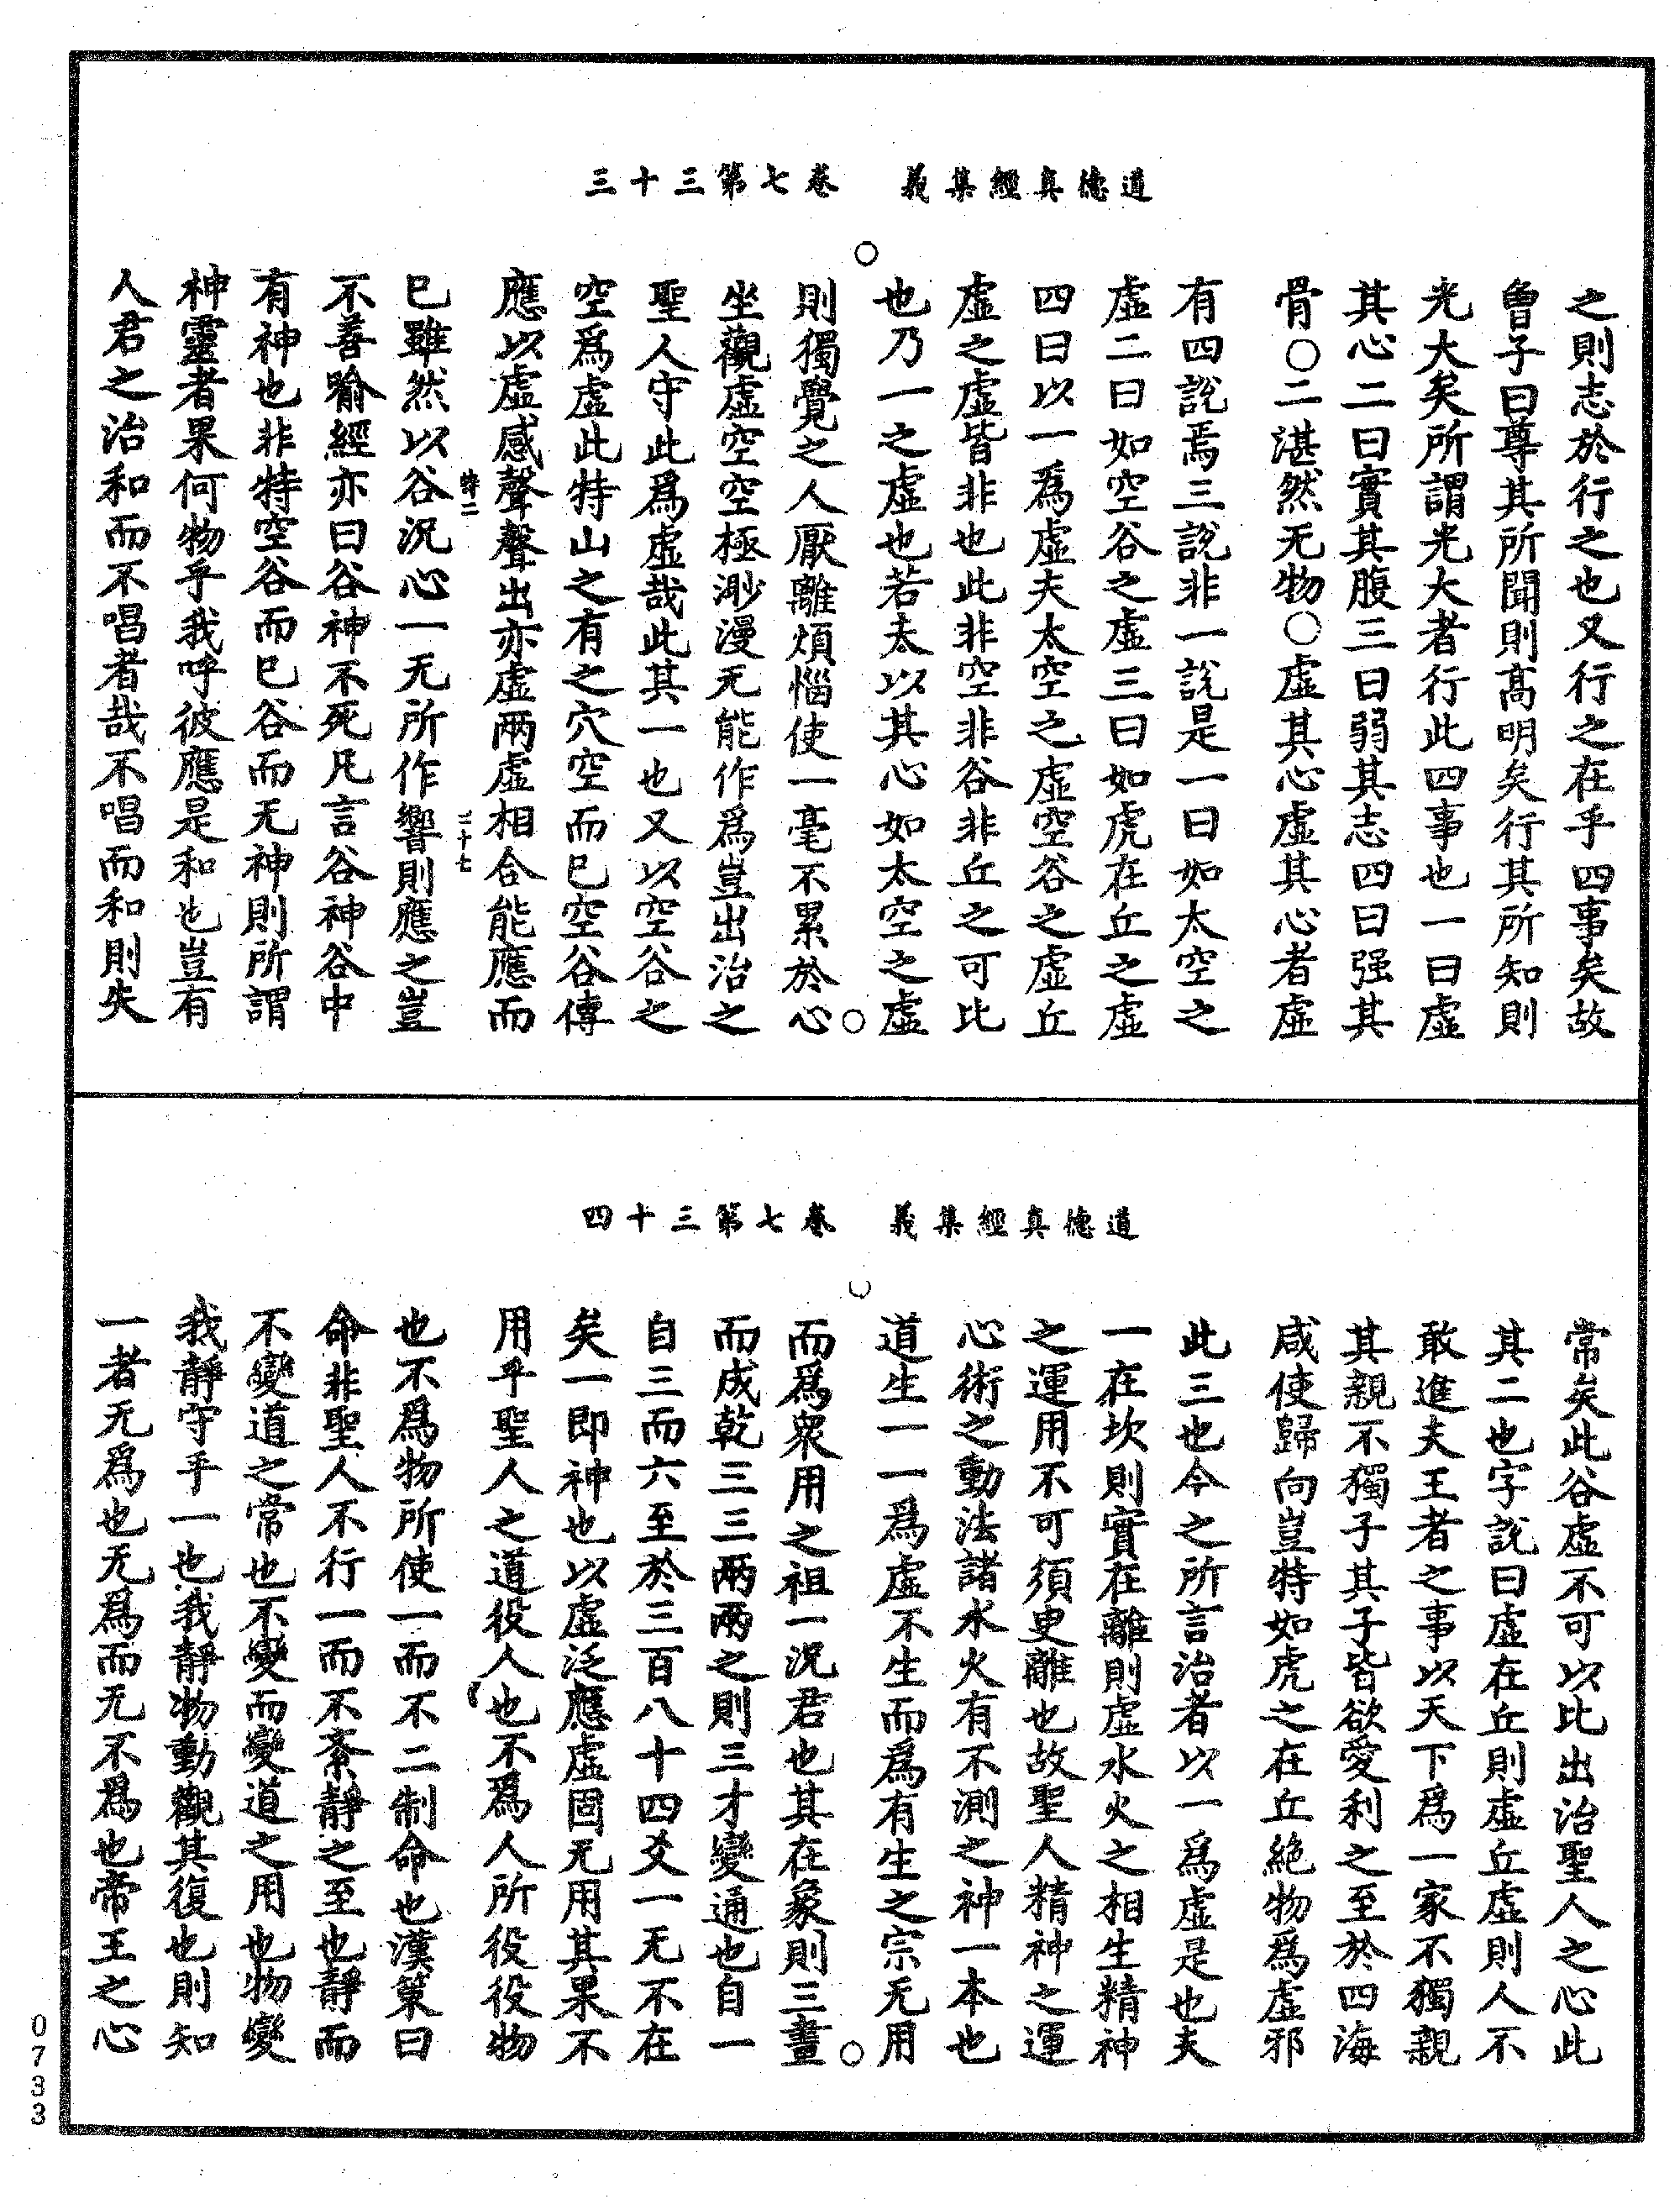 道德真經集義　卷七第三十三
之則志於行之也又行之在乎四事矣故
曾子曰尊其所聞則高明矣行其所知則
光大矣所謂光大者行此四事也一曰虛
其心二曰實其腹三曰弱其志四曰强其
骨○二湛然无物○虛其心虛其心者虛
有四說焉三說非一說是一曰如太空之
虛二曰如空谷之虛三曰如虎在丘之虛
四曰以一爲虛夫太空之虛空谷之虛丘
虛之虛皆非也此非空非谷非丘之可比
也乃一之虛也若太以其心如太空之虛
則獨覺之人厭離煩惱使一毫不累於心
坐觀虛空空極渺漫无能作爲豈出治之
聖人守此爲虛哉此其一也又以空谷之
空爲虛此特山之有之穴空而巳空谷傳
應以虛感聲聲出亦虛兩虛相合能應而
巳雖然以谷況心一无所作響則應之豈
不善喻經亦曰谷神不死凡言谷神谷中
有神也非特空谷而巳谷而无神則所謂
神靈者果何物乎我呼彼應是和也豈有
人君之治和而不唱者哉不唱而和則失
二十七
道德真經集義　卷七第三十四
常矣此谷虛不可以比出治聖人之心此
其二也字說曰虛在丘則虛丘虛則人不
敢進夫王者之事以天下爲一家不獨親
其親不獨子其子皆欲愛利之至於四海
咸使歸向豈特如虎之在丘絶物爲虛邪
此三也今之所言治者以一爲虛是也夫
一在坎則實在離則虛水火之相生精神
之運用不可須臾離也故聖人精神之運
心術之動法諸水火有不測之神一本也
道生一一爲虛不生而爲有生之宗无用
而爲衆用之祖一況君也其在象則三畫
而成乾三三兩兩之則三才變通也自一
自三而六至於三百八十四爻一无不在
矣一即神也以虛泛應虛固无用其果不
用乎聖人之道役人也不爲人所役役物
也不爲物所使一而不二制命也漢策曰
命非聖人不行一而不紊靜之至也靜而
不變道之常也不變而變道之用也物變
我靜守乎一也我靜物動觀其復也則知
一者无爲也无爲而无不爲也帝王之心
0733